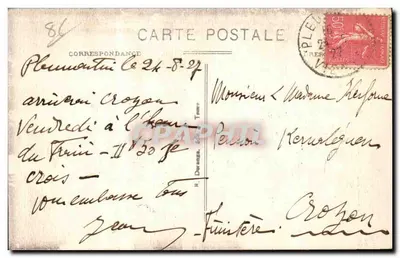 86
CARTE POSTALE
CORRESPONDANCE
Pleumeutin le 24-8-27
arriverai Crozon
Vendredi à l'heure
du Train - II h 30 je
crois -
vous embrasse Tous
Jean
Monsieur & Madame
Pension Kerneleguen
Crozon
Finistère
PLEU
50c
CPARAMA